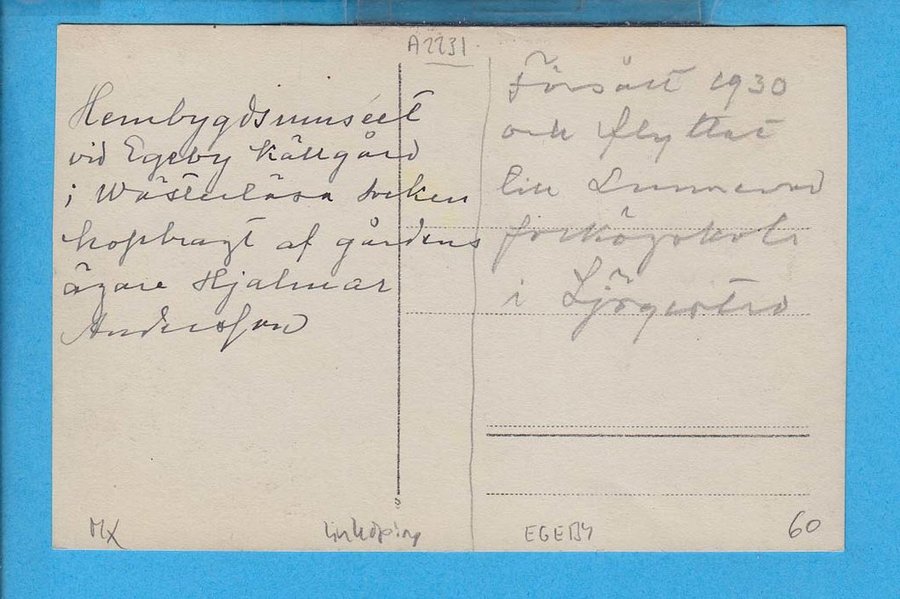 A2231
Hembygdsmuséet
vid Egeby Källgård
i Wästerlösa socken
hopbragt af gårdens
ägare Hjalmar
Andersson
Försålt 1930
och flyttat
till Lunnevad
folkhögskola
i Sjögestad
MX
Linköping
EGEBY
60